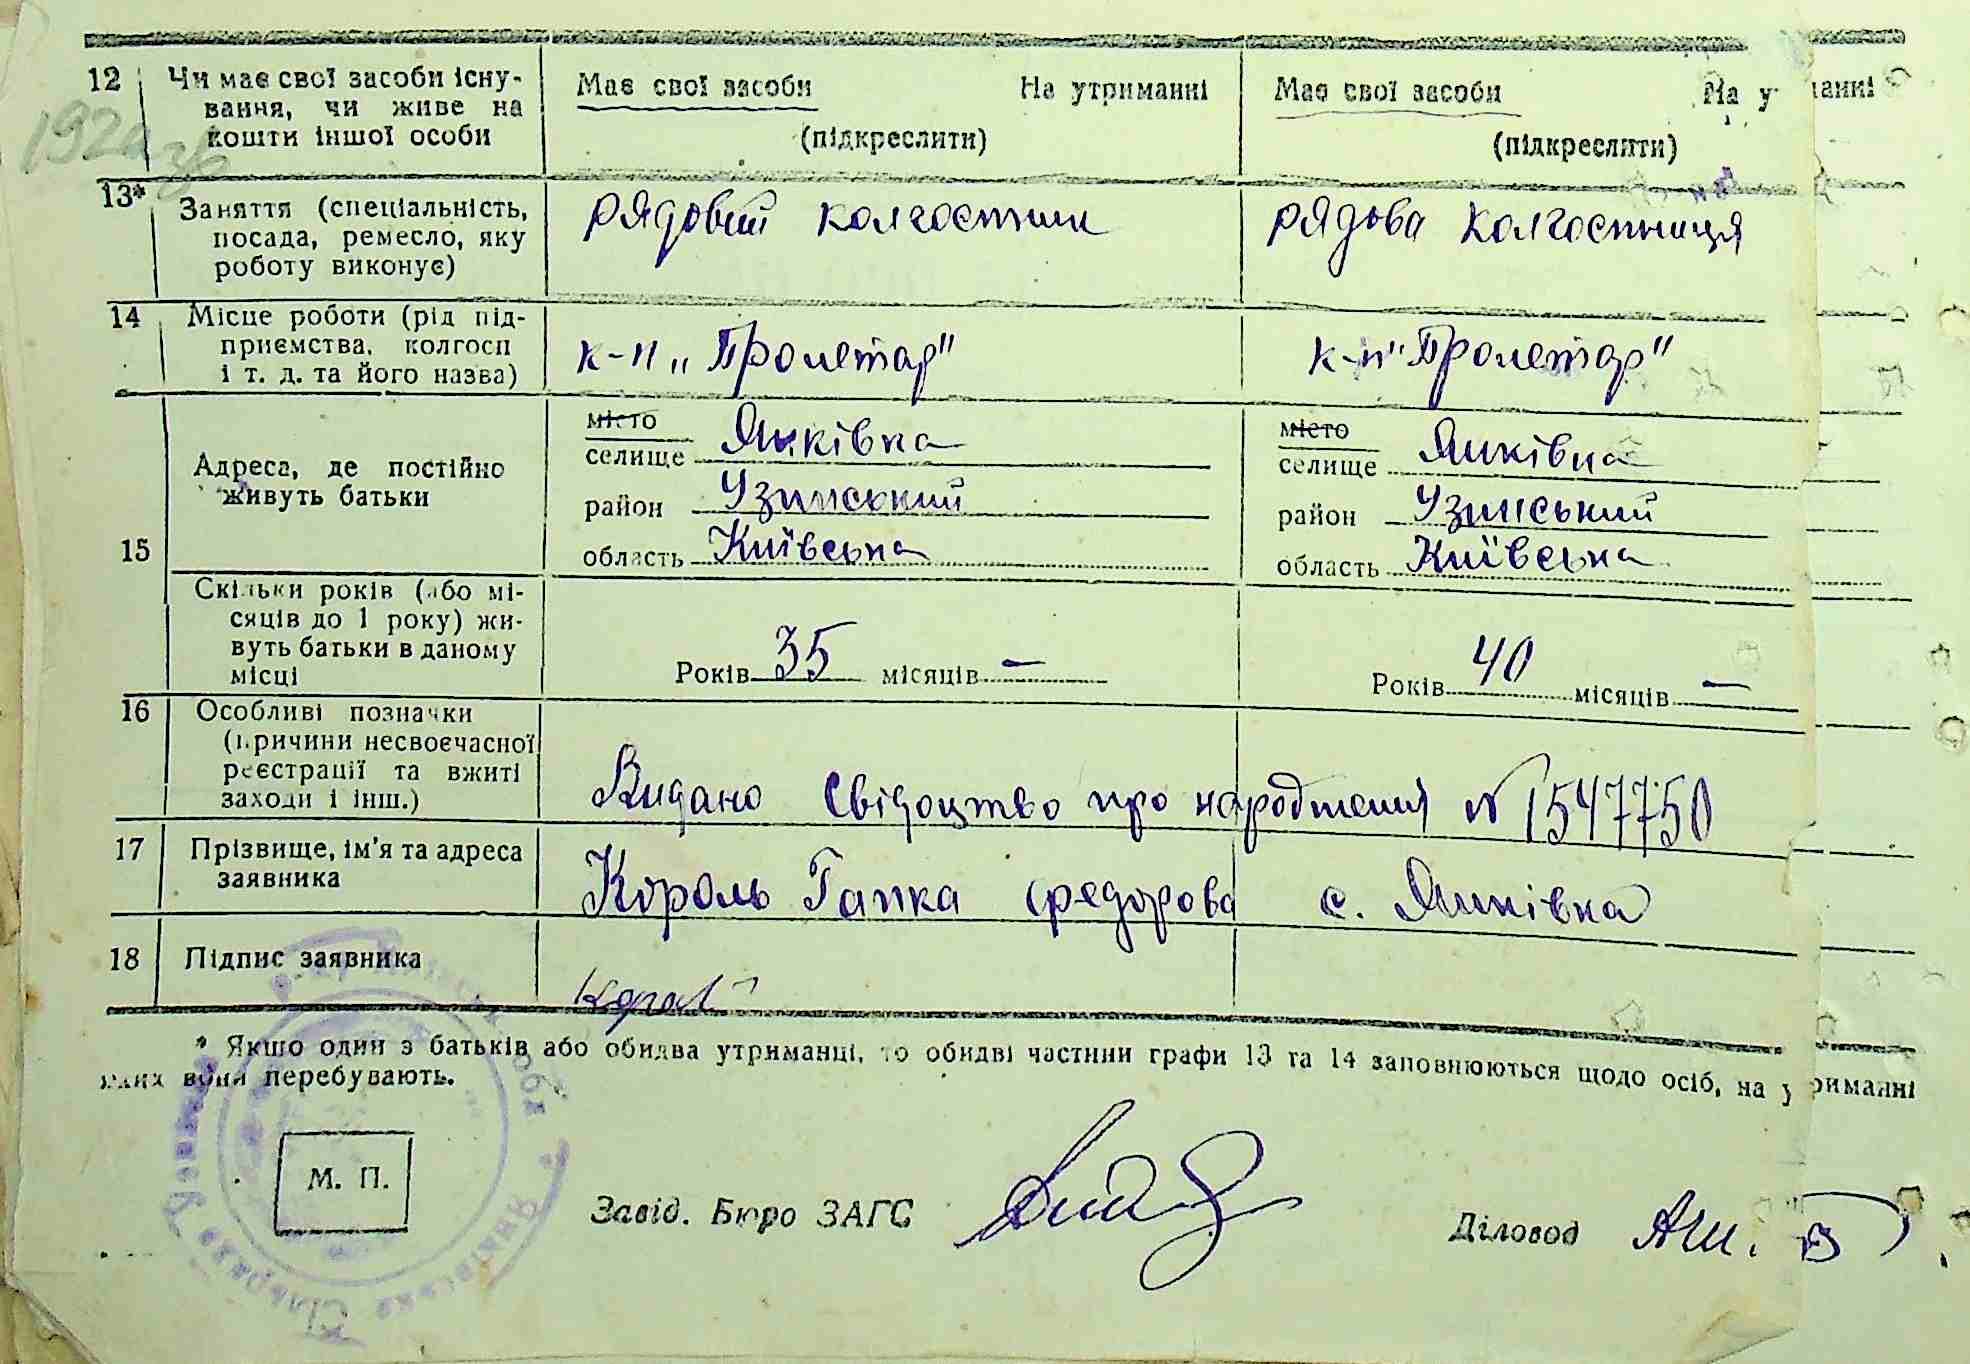 12 Чи має свої засоби існу- Має свої засоби На утриманні Має свої засоби На у манні
вання, чи живе на
кошти іншої особи (підкреслити) (підкреслити)
13* Заняття (спеціальність, рядовий колгоспник рядова колгоспниця
посада, ремесло, яку
роботу виконує)
14 Місце роботи (рід під-
приємства, колгосп к-п „Пролетар" к-п "Пролетар"
і т. д. та його назва)
15 Адреса, де постійно живуть батьки
місто
селище Яцківка
район Узинський
область Київська
місто
селище Яцківка
район Узинський
область Київська
Скільки років (або мі-
сяців до 1 року) жи-
вуть батьки в даному
місці
Років 35 місяців —
Років 40 місяців —
16 Особливі позначки
(причини несвоєчасної
реєстрації та вжиті
заходи і інш.)
Видано свідоцтво про народження № 1547750
17 Прізвище, ім'я та адреса
заявника
Король Гапка Федорова с. Яцківка
18 Підпис заявника
Король
* Якщо один з батьків або обидва утриманці, то обидві частини графи 13 та 14 заповнюються щодо осіб, на у риманні
яких вони перебувають.
М. П.
Завід. Бюро ЗАГС
Діловод